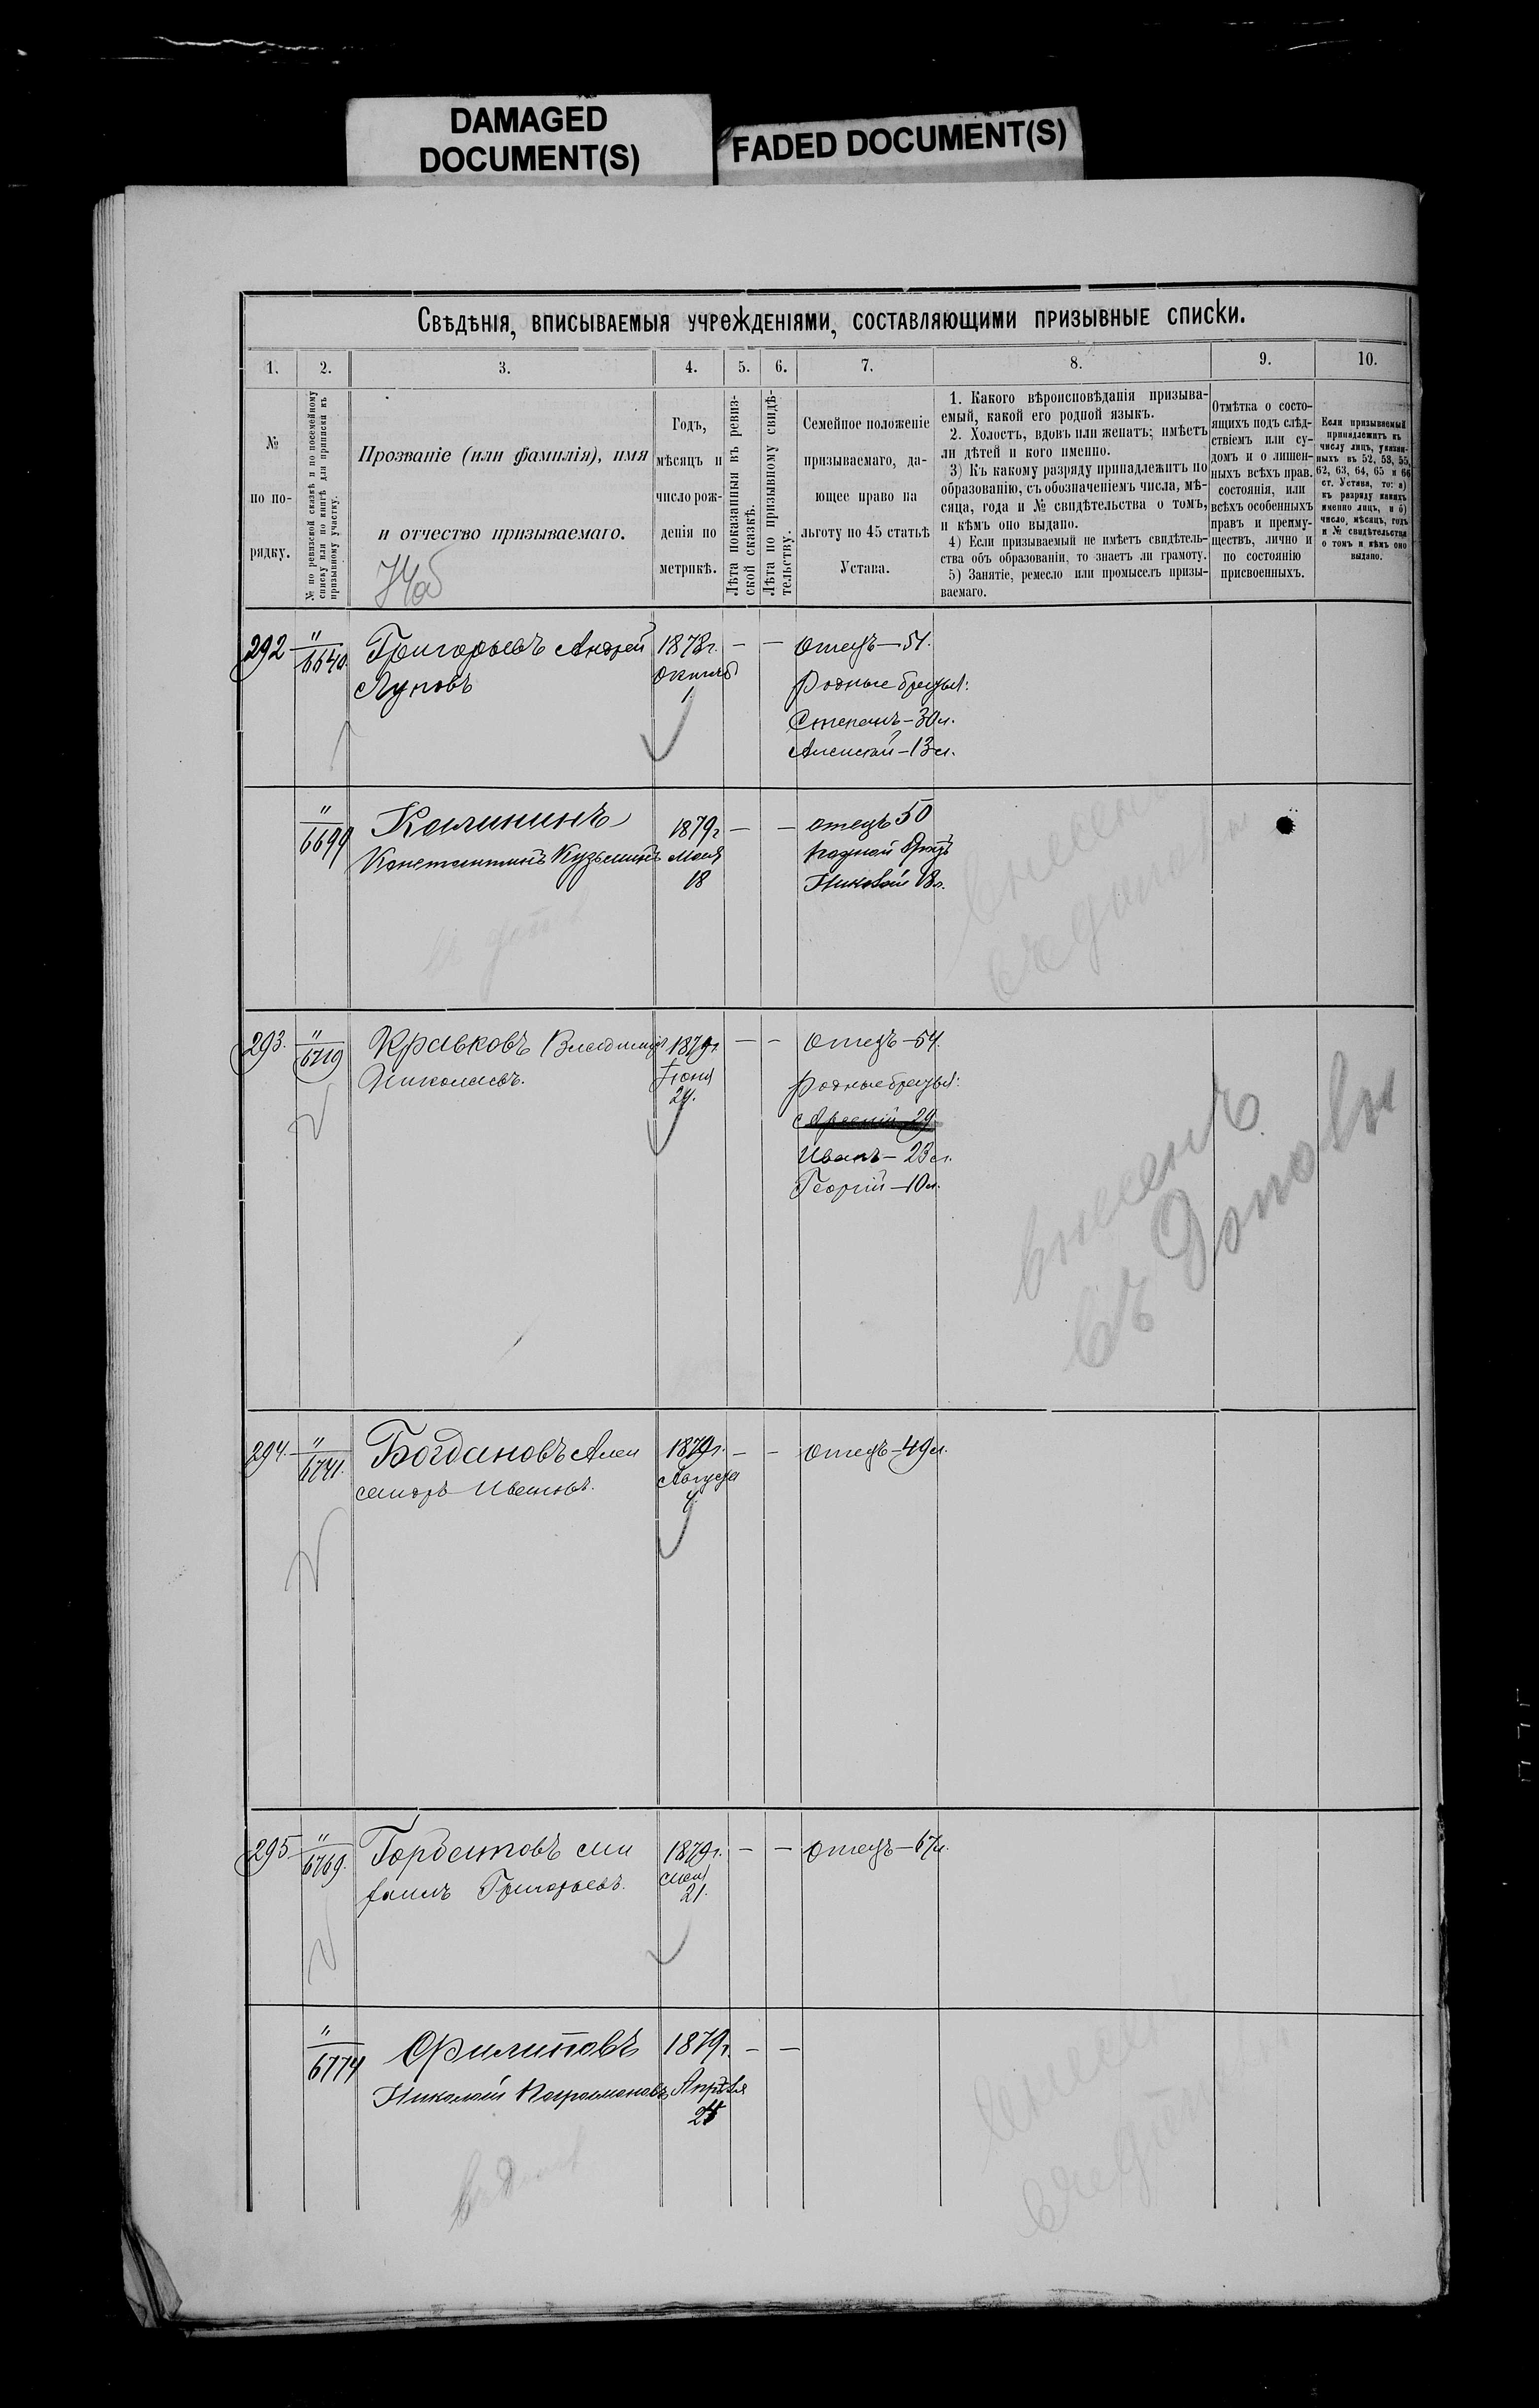 DAMAGED
DOCUMENT(S)
FADED DOCUMENT(S)
Свѣдѣнія, вписываемыя учрежденіями, составляющими призывные списки.
1. 2. 3. 4. 5. 6. 7. 8. 9. 10.
№
по по-
рядку.
№ по ревизской сказкѣ и по посемейному
списку или по книгѣ для приписки къ
призывному участку.
Прозваніе (или фамилія), имя
и отчество призываемаго.
Годъ,
мѣсяцъ и
число рож-
денія по
метрикѣ.
Лѣта показанныя въ ревиз-
ской сказкѣ.
Лѣта по призывному свидѣ-
тельству.
Семейное положеніе
призываемаго, да-
ющее право на
льготу по 45 статьѣ
Устава.
1. Какого вѣроисповѣданія призыва-
емый, какой его родной языкъ.
2. Холостъ, вдовъ или женатъ; имѣетъ
ли дѣтей и кого именно.
3) Къ какому разряду принадлежитъ по
образованію, съ обозначеніемъ числа, мѣ-
сяца, года и № свидѣтельства о томъ,
и кѣмъ оно выдано.
4) Если призываемый не имѣетъ свидѣтель-
ства объ образованіи, то знаетъ ли грамоту.
5) Занятіе, ремесло или промыселъ призы-
ваемаго.
Отмѣтка о состо-
ящихъ подъ слѣд-
ствіемъ или су-
домъ и о лишен-
ныхъ всѣхъ прав.
состоянія, или
всѣхъ особенныхъ
правъ и преиму-
ществъ, лично и
по состоянію
присвоенныхъ.
Если призываемый
принадлежитъ къ
числу лицъ, указан-
ныхъ въ 52, 53, 55,
62, 63, 64, 65 и 66
ст. Устава, то: а)
къ разряду какихъ
именно лицъ, и б)
число, мѣсяцъ, годъ
и № свидѣтельства
о томъ и кѣмъ оно
выдано.
292 " 6640. Григорьевъ Андрей 1878г. — — отецъ—51.
Луповъ 1 Родные братья:
Степанъ—30л.
Алексѣй—13л.
" 6699 Калининъ 1879г — — отецъ 50
Константинъ Кузьминъ Мая родной братъ
18 Николай 18л.
293. " 6719 Кравковъ Владиміръ 1879г. — — отецъ—54.
Николаевъ. Іюня родные братья:
24. Арсеній 29
Иванъ—23л.
Георгій—10л.
внесенъ
въ дополн
294. " 6741. Богдановъ Алек 1879г. — — отецъ—49л.
сандръ Ивановъ. Августа
4
295 " 6769. Горбатовъ Ми 1879г. — — отецъ—67л.
хаилъ Григорьевъ. Мая
21.
" 6774 Филиповъ 1879г. — —
Николай Апрѣля